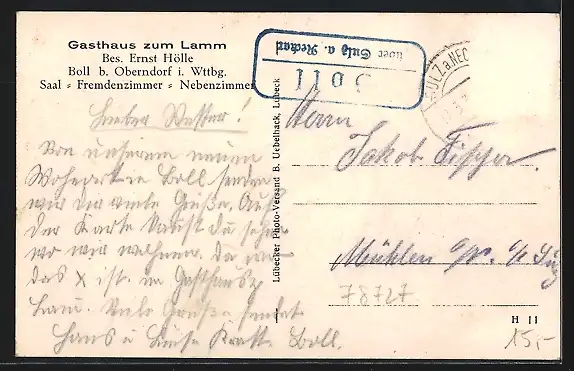 Gasthaus zum Lamm
Bes. Ernst Hölle
Boll b. Oberndorf i. Wttbg.
Saal - Fremdenzimmer - Nebenzimmer
Lieber Vetter!
Von unserem neuen
Wohnort in Boll senden
wir dir viele Grüße. Auf
der Karte kannst du sehen
wo wir wohnen. Da wo
das x ist. im Gasthaus z.
Lamm. Viele Grüße sendet
Hans u Luise Boll.
Lübecker Photo-Versand B. Uebelhack, Lübeck
Boll
über Sulz a. Neckar
SULZ a. NEC
Herrn
Jakob
Mühlen
78727
H 11
15,-